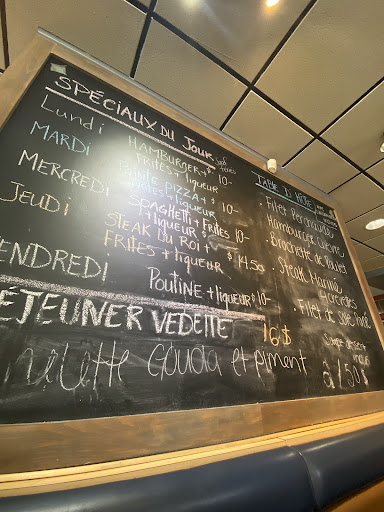 SPÉCIAUX DU JOUR
Lundi HAMBURGER +
FRITES + liqueur 10-
MARDI Pointe PIZZA + $
+ liqueur 10-
MERCREDI Spaghetti + Frites
+ liqueur $ 10-
JEUDI STEAK DU ROI +
FRITES + liqueur $14.50
VENDREDI Poutine + liqueur $10-
DEJEUNER VEDETTE 16$
Gouda et piment
TABLE D'HÔTE
Filet
Hamburger
Brochette de Poulet
Steak Mariné
Filet de Sole
Soupe dessert